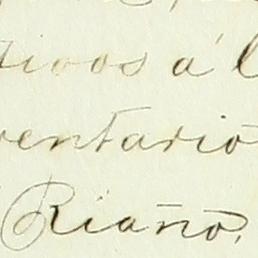 tivos á l
ventario
Riaño.